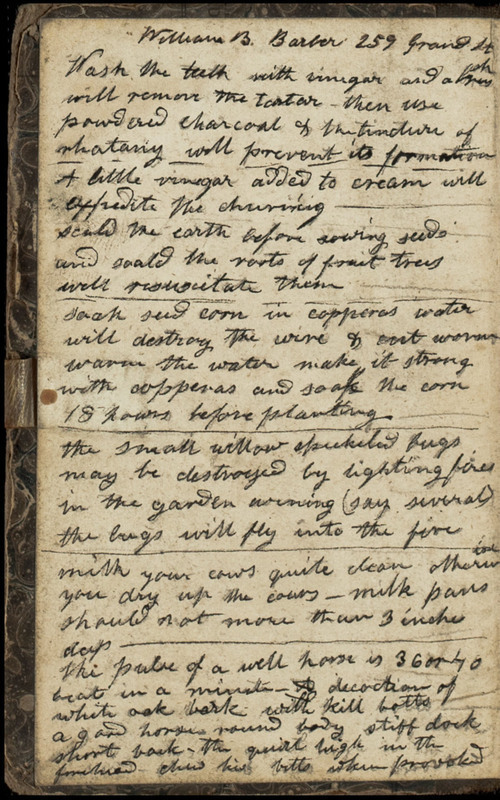 William B. Barber 259 Grand St
Wash the teeth with vinegar and a
will remove the tartar - then use
powdered charcoal & the tincture of
rhatany will prevent its formation
A little vinegar added to cream will
expedite the churning
scald the earth before sowing seeds
and scald the roots of fruit trees
will resuscitate them
soak seed corn in copperas water
will destroy the wire & cut worm
warm the water make it strong
with copperas and soak the corn
18 hours before planting
the small willow speckled bugs
may be destroyed by lighting fires
in the garden evening (say several)
the bugs will fly into the fire
milk your cows quite clean otherwise
you dry up the cows - milk pans
should not more than 3 inches
deep
the pulse of a well horse is 36 or 40
beats in a minute - A decoction of
white oak bark will kill botts
a good horse round body stiff dock
short back - the high in the
forehead his bitts when provoked